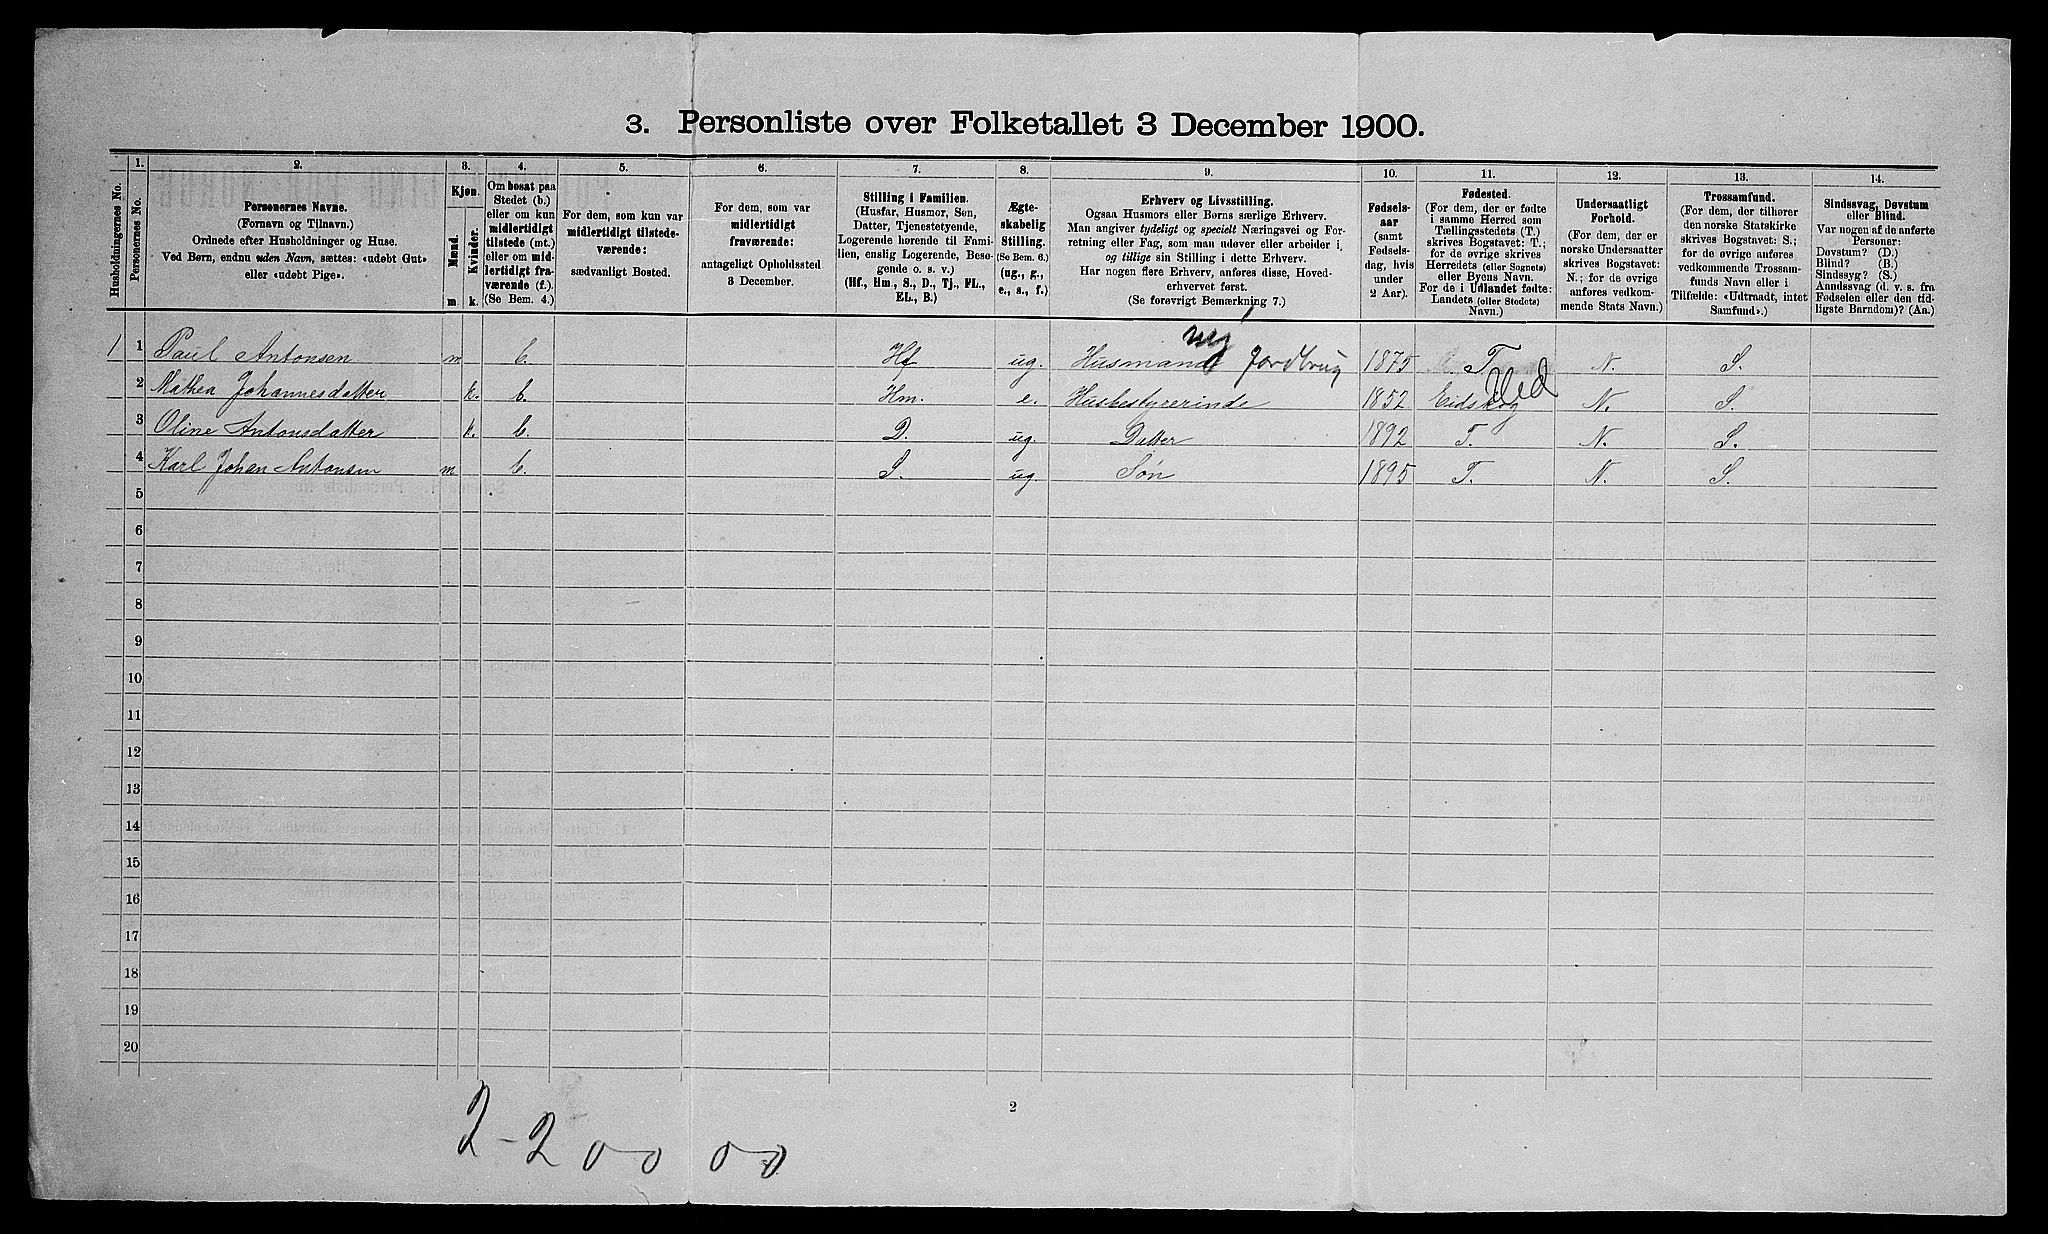 3. Personliste over Folketallet 3 December 1900.
Husholdningernes No.
1.
Personernes No.
2.
Personernes Navne.
(Fornavn og Tilnavn.)
Ordnede efter Husholdninger og Huse.
Ved Børn, endnu uden Navn, sættes: «udøbt Gut»
eller «udøbt Pige».
3.
Kjøn.
Mænd.
Kvinder.
m.
k.
4.
Om bosat paa
Stedet (b.)
eller om kun
midlertidigt
tilstede (mt.)
eller om mid-
lertidigt fra-
værende (f.).
(Se Bem. 4.)
5.
For dem, som kun var
midlertidigt tilstede-
værende:
sædvanligt Bosted.
6.
For dem, som var
midlertidigt
fraværende:
antageligt Opholdssted
3 December.
7.
Stilling i Familien.
(Husfar, Husmor, Søn,
Datter, Tjenestetyende,
Logerende hørende til Fami-
lien, enslig Logerende, Besø-
gende o. s. v.)
(Hf., Hm., S., D., Tj., FL.,
EL., B.)
8.
Ægte-
skabelig
Stilling.
(Se Bem. 6.)
(ug., g.,
e., s., f.)
9.
Erhverv og Livsstilling.
Ogsaa Husmors eller Børns særlige Erhverv.
Man angiver tydeligt og specielt Næringsvei og For-
retning eller Fag, som man udøver eller arbeider i,
og tillige sin Stilling i dette Erhverv.
Har nogen flere Erhverv, anføres disse, Hoved-
erhvervet først.
(Se forøvrigt Bemærkning 7.)
10.
Fødsels-
aar
(samt
Fødsels-
dag, hvis
under
2 Aar).
11.
Fødested.
(For dem, der er fødte
i samme Herred som
Tællingsstedets (T.)
skrives Bogstavet: T.;
for de øvrige skrives
Herredets (eller Sognets)
eller Byens Navn.
For de i Udlandet fødte:
Landets (eller Stedets)
Navn.)
12.
Undersaatligt
Forhold.
(For dem, der er
norske Undersaatter
skrives Bogstavet:
N.; for de øvrige
anføres vedkom-
mende Stats Navn.)
13.
Trossamfund.
(For dem, der tilhører
den norske Statskirke
skrives Bogstavet: S.;
for de øvrige anføres
vedkommende Trossam-
funds Navn eller i
Tilfælde: «Udtraadt, intet
Samfund».)
14.
Sindssvag, Døvstum
eller Blind.
Var nogen af de anførte
Personer:
Døvstum? (D.)
Blind? (B.)
Sindssyg? (S.)
Aandssvag (d. v. s. fra
Fødselen eller den tid-
ligste Barndom)? (Aa.)
1 1 Paul Antonsen m b. Hf ug. Husmand Jordbrug 1875 T N. S.
2 Mathea Johannesdatter k. b. Hm. e. Husbestyrerinde 1852 Eidskog N. S.
3 Oline Antonsdatter k. b. D. ug. Datter 1892 T. N. S.
4 Karl Johan Antonsen m b. S. ug. Søn 1895 T. N. S.
5
6
7
8
9
10
11
12
13
14
15
16
17
18
19
20
2
2-200 00